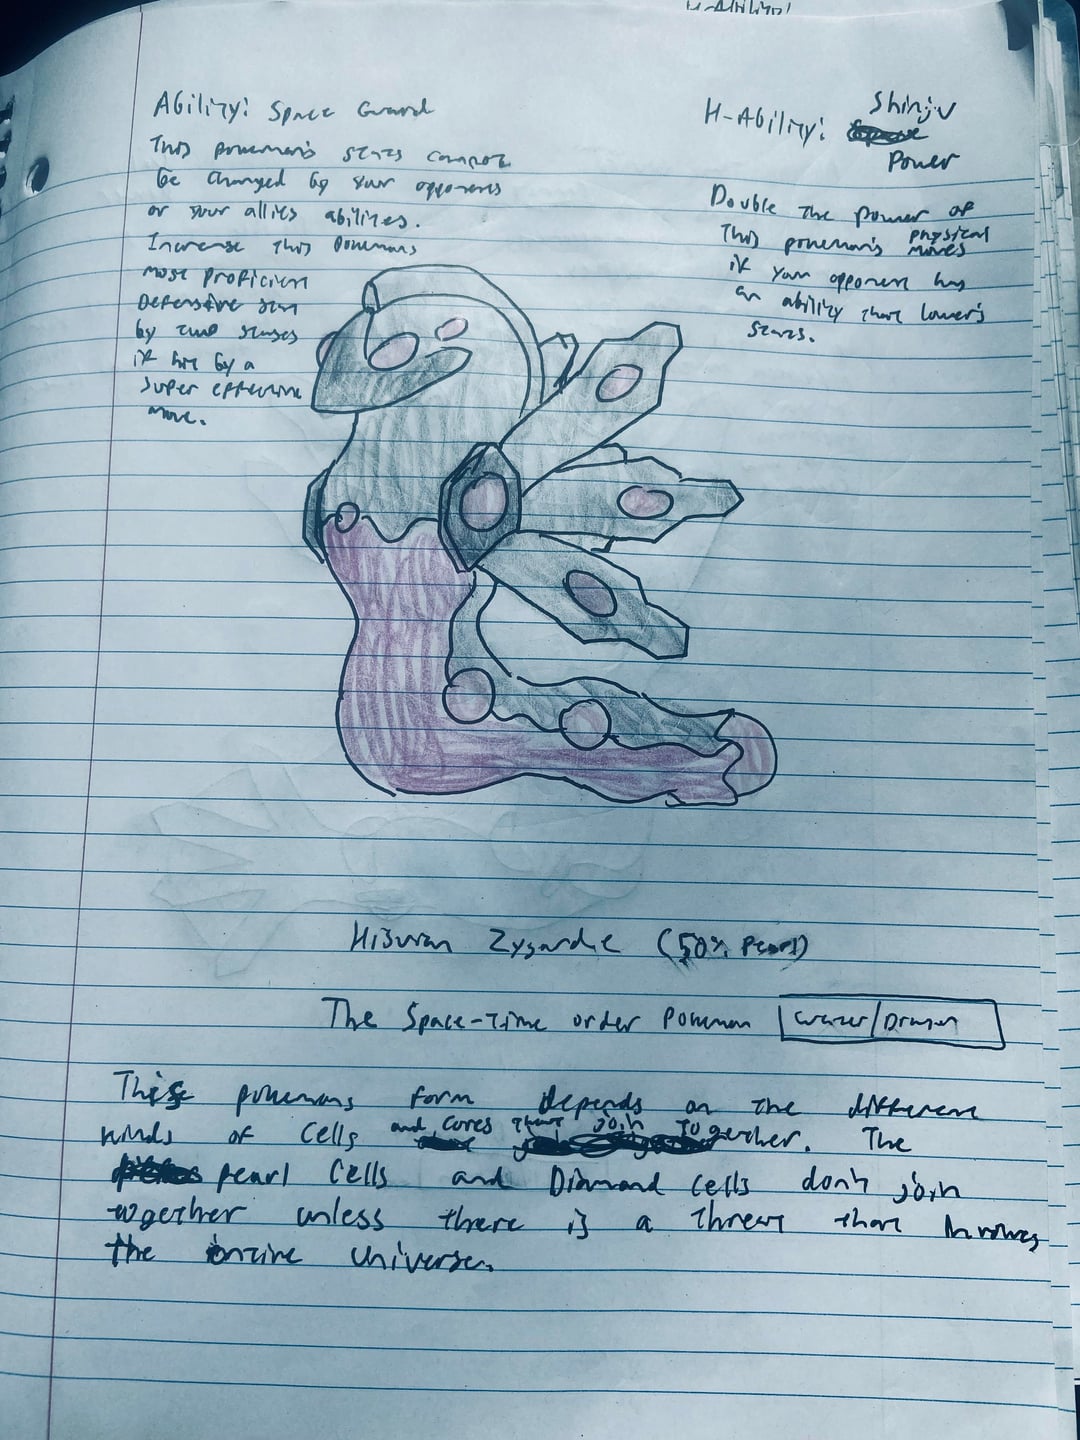 H-Ability!
Ability: Space Guard
This pokemon's stats cannot
be changed by your opponents
or your allies abilities.
Increase this Pokemons
most proficient
Defensive stat
by two stages
if hit by a
super effective
move.
H-Ability: Shinju
Power
Double the power of
This pokemon's physical moves
if your opponent has
an ability that lower's
stats.
Hisuian Zygarde (50% Pearl)
The Space-Time order Pokemon Water/Dragon
These pokemons form depends on the different
kinds of cells and cores that join together. The
pearl cells and Diamond cells don't join
together unless there is a threat that involves
the entire universe.